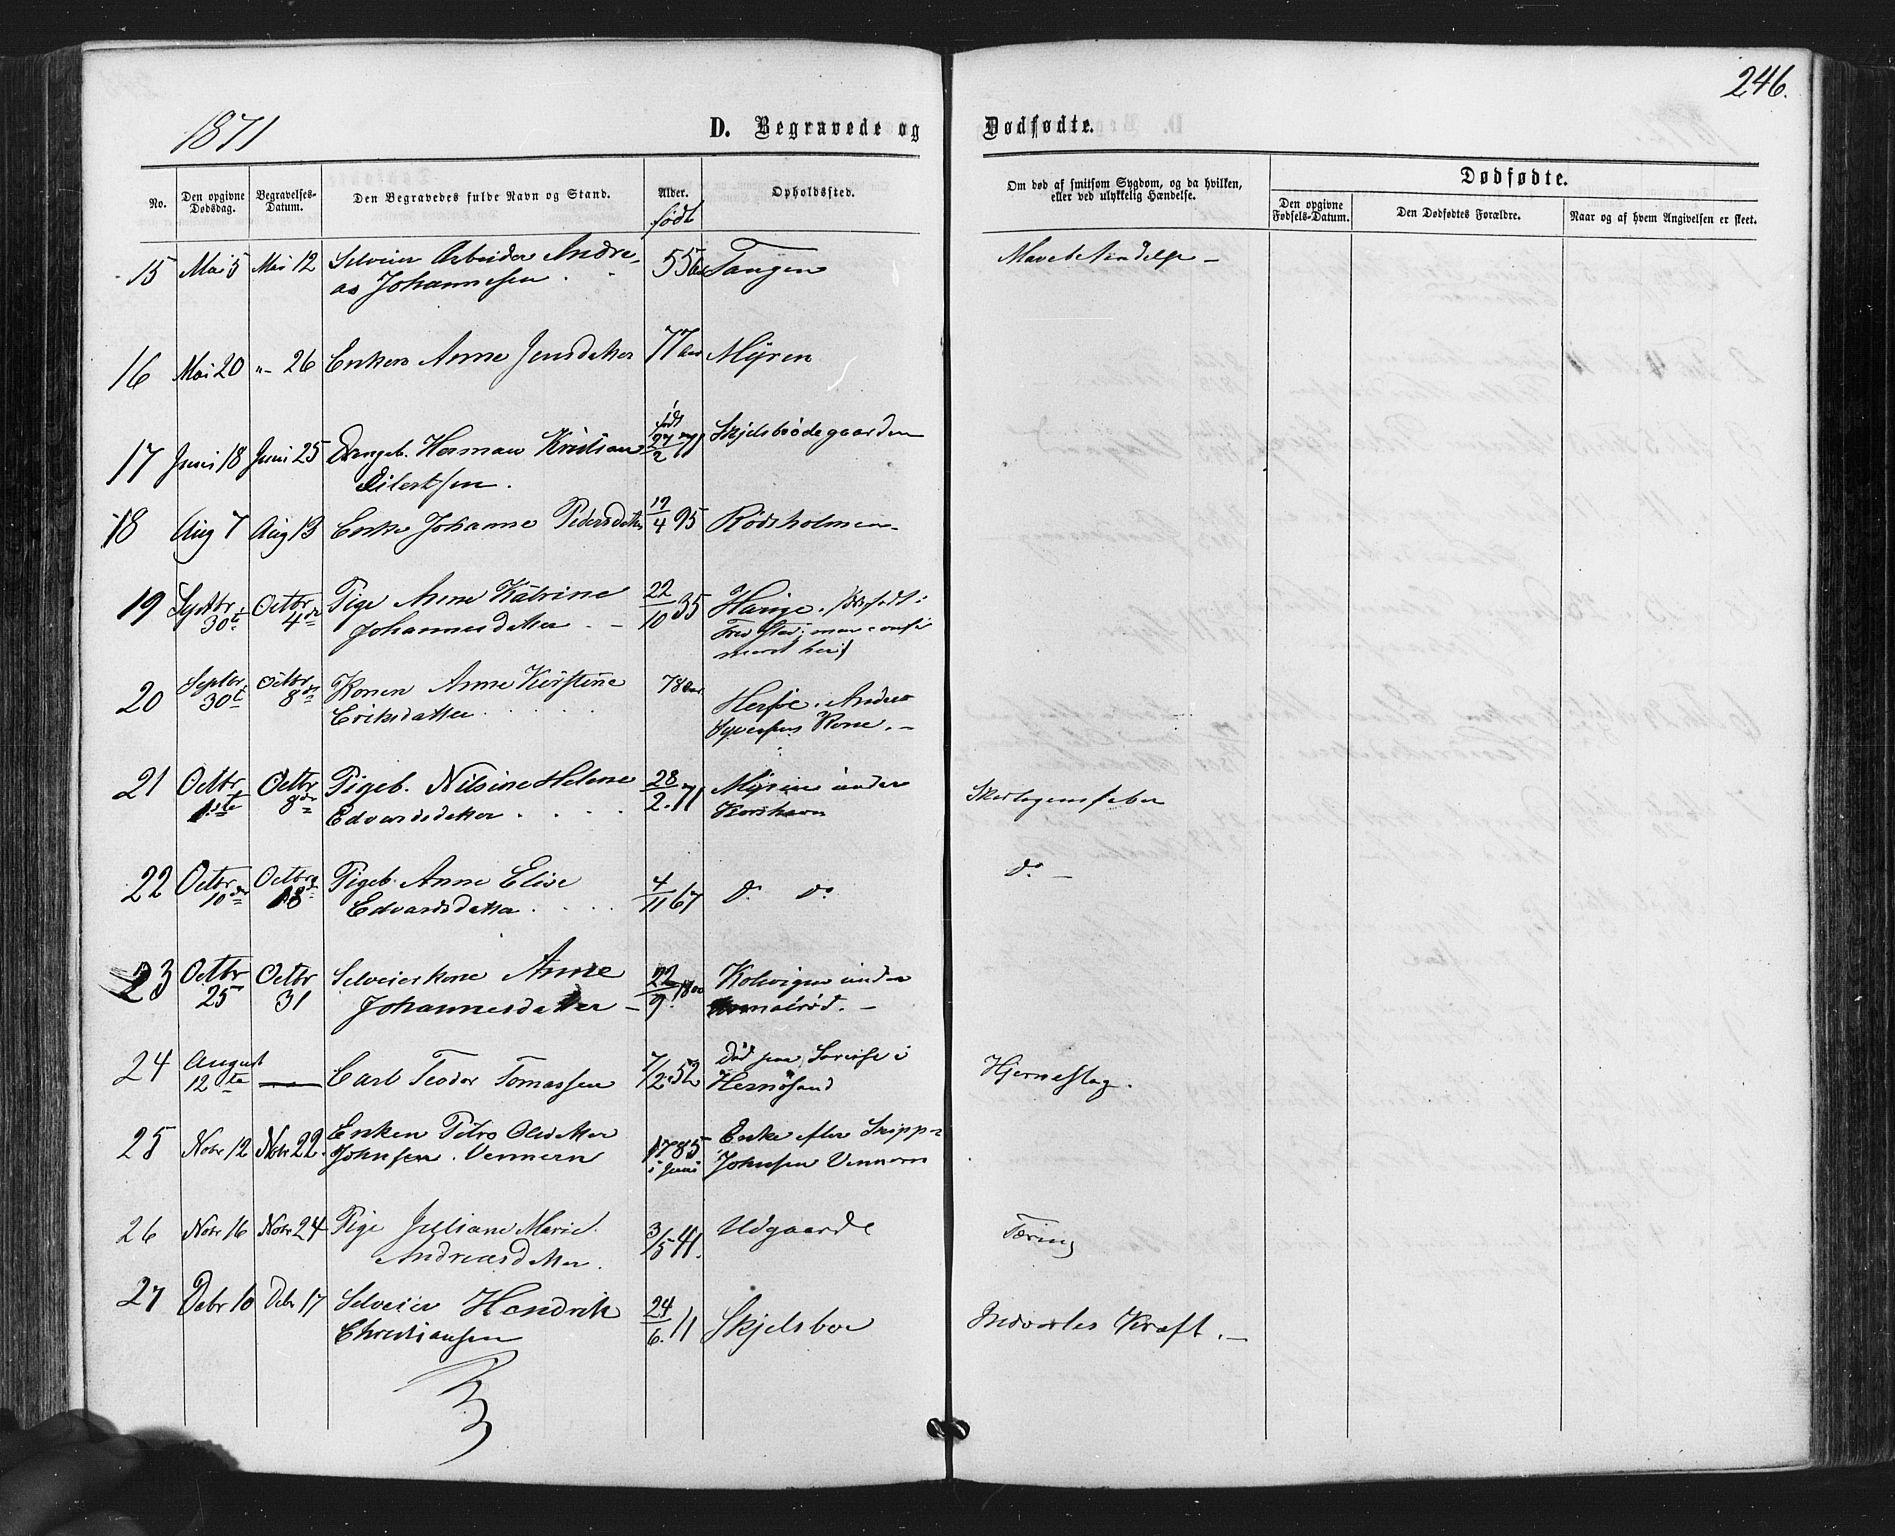 246.
1871
D. Begravede og Dødfødte.
No. Den opgivne Dødsdag. Begravelses-Datum. Den Begravedes fulde Navn og Stand. Alder. født Opholdssted. Om død af smitsom Sygdom, og da hvilken, eller ved ulykkelig Hændelse.
Dødfødte.
Den opgivne Fødsels-Datum. Den Dødfødtes Forældre. Naar og af hvem Angivelsen er skeet.
15 Mai 5 Mai 12 Selveier Arbeider Andre- 55 aar Tangen
as Johannesen
16 Mai 20 "- 26 Enken Anne Jensdatter 77 aar Myren
17 Juni 18 Juni 25 Drengeb. Herman Kristian født 27/2 71 Skjelsbødegaarden
Eilertsen.
18 Aug 7 Aug 13 Enke Johanne Pedersdatter 17/4 95 Rødsholmen
19 Septbr 30te Octbr 4de Pige Anne Katrine 22/10 35 Hauge.
Johannesdatter
meret her)
20 Septbr 30te Octbr 8de Konen Anne Kirstine 78 aar
Eriksdatter. Kone.
21 Octbr 1ste Octbr 8de Pigeb. Nilsine Helene 28/2 71 Myren under Skarlagensfeber
Edvardsdatter Korshavn
22 Octbr 10de Octbr 18de Pigeb. Anne Elise 4/11 67 do do do
Edvardsdatter
23 Octbr 25 Octbr 31 Selveierkone Anne 22/9 1800 Kolvigen under
Johannesdatter
24 August 12te — Carl Teodor Tomassen 7/2 52 Død paa i Hernøsand Hjerneslag.
25 Novbr 12 Novbr 22. Enken Olsdatter 1785 i Juni Enke efter Skipper
Johnsen Vennern Johnsen Vennern
26 Novbr 16 Novbr 24 Pige Juliane Marie 3/5 41. Udgaarde Tæring
Andreasdatter.
27 Debr 10 Debr 17 Selveier Hendrik 24/6 11 Skjelsboe Indvortes Kræft.
Christiansen